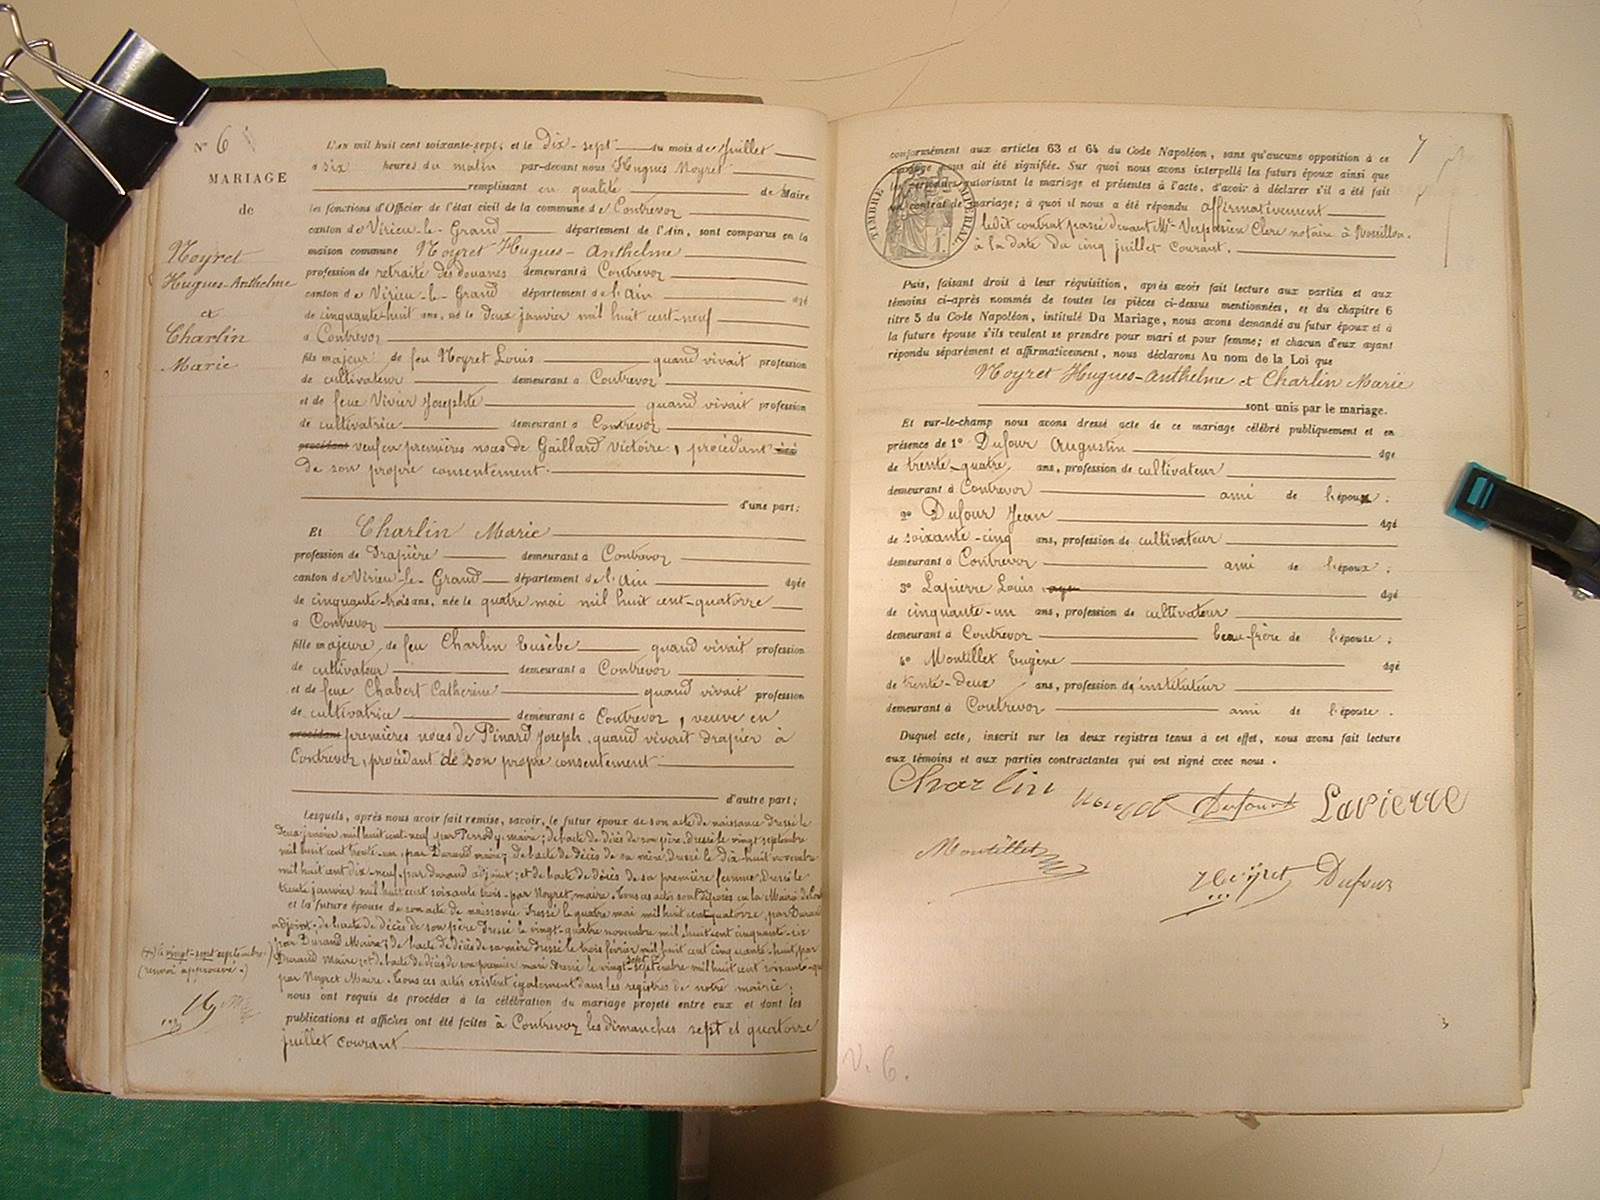 N° 6
MARIAGE
de
Noyret
Hugues-Anthelme
et
Charlin
Marie
L'an mil huit cent soixante-sept, et le Dix-sept du mois de Juillet
à six heures du matin par-devant nous Hugues Noyret
remplissant en qualité de Maire
les fonctions d'Officier de l'état civil de la commune de Contrevoz
canton de Virieu-le-Grand département de l'Ain, sont comparus en la
maison commune Noyret Hugues-Anthelme
profession de retraité des douanes demeurant à Contrevoz
canton de Virieu-le-Grand département de l'Ain âgé
de cinquante-huit ans, né le deux janvier mil huit cent-neuf
à Contrevoz
fils majeur de feu Noyret Louis quand vivait profession
de cultivateur demeurant à Contrevoz
et de feue Vivier Josephte quand vivait profession
de cultivatrice demeurant à Contrevoz
procédant veuf en premières noces de Gaillard Victoire, procédant
de son propre consentement.
d'une part;
Et Charlin Marie
profession de Drapière demeurant à Contrevoz
canton de Virieu-le-Grand département de l'Ain âgée
de cinquante-trois ans, née le quatre mai mil huit cent-quatorze
à Contrevoz
fille majeure de feu Charlin Eusèbe quand vivait profession
de cultivateur demeurant à Contrevoz
et de feue Chabert Catherine quand vivait profession
de cultivatrice demeurant à Contrevoz, veuve en
procédant premières noces de Pinard Joseph quand vivait drapier à
Contrevoz, procédant de son propre consentement
d'autre part;
Lesquels, après nous avoir fait remise, savoir, le futur époux de son acte de naissance dressé le
deux janvier mil huit cent-neuf par Perrody, maire; de l'acte de décès de son père dressé le vingt septembre
mil huit cent trente-un, par Durand maire; de l'acte de décès de sa mère dressé le dix-huit novembre
mil huit cent dix-neuf, par durand adjoint; et de l'acte de décès de sa première femme, dressé le
trente janvier mil huit cent soixante trois, par Noyret, maire. Tous ces actes sont déposés en la Mairie de
et la future épouse de son acte de naissance dressé le quatre mai mil huit cent quatorze, par Durand
adjoint; de l'acte de décès de son père dressé le vingt-quatre novembre mil huit cent cinquante-six
par Durand Maire; de l'acte de décès de sa mère dressé le trois février mil huit cent cinquante-huit, par
Durand Maire; et de l'acte de décès de son premier mari dressé le vingt-sept septembre mil huit cent soixante
par Noyret Maire. Tous ces actes existent également dans les registres de notre mairie;
(+) le vingt-sept septembre.
(renvoi approuvé.)
nous ont requis de procéder à la célébration du mariage projeté entre eux et dont les
publications et affiches ont été faites à Contrevoz les dimanches sept et quatorze
juillet courant
7
conformément aux articles 63 et 64 du Code Napoléon, sans qu'aucune opposition à ce
mariage nous ait été signifiée. Sur quoi nous avons interpellé les futurs époux ainsi que
les personnes autorisant le mariage et présentes à l'acte, d'avoir à déclarer s'il a été fait
un contrat de mariage; à quoi il nous a été répondu affirmativement
TIMBRE IMPÉRIAL
ledit contrat passé devant Me Vespasien Clerc notaire à Rossillon
à la date du cinq juillet courant.
Puis, faisant droit à leur réquisition, après avoir fait lecture aux parties et aux
témoins ci-après nommés de toutes les pièces ci-dessus mentionnées, et du chapitre 6
titre 5 du Code Napoléon, intitulé Du Mariage, nous avons demandé au futur époux et à
la future épouse s'ils veulent se prendre pour mari et pour femme; et chacun d'eux ayant
répondu séparément et affirmaticement, nous déclarons Au nom de la Loi que
Noyret Hugues-Anthelme et Charlin Marie
sont unis par le mariage.
Et sur-le-champ nous avons dressé acte de ce mariage célébré publiquement et en
présence de 1° Dufour Augustin âgé
de trente-quatre ans, profession de cultivateur
demeurant à Contrevoz ami de l'époux;
2° Dufour Jean âgé
de soixante-cinq ans, profession de cultivateur
demeurant à Contrevoz ami de l'époux;
3° Lapierre Louis âgé
de cinquante-un ans, profession de cultivateur
demeurant à Contrevoz beau-frère de l'épouse;
4° Montillet Eugène âgé
de trente-deux ans, profession d'instituteur
demeurant à Contrevoz ami de l'épouse.
Duquel acte, inscrit sur les deux registres tenus à cet effet, nous avons fait lecture
aux témoins et aux parties contractantes qui ont signé avec nous.
Charlin Noyret Dufour Lapierre
Montillet
Noyret Dufour
3
V. 6.